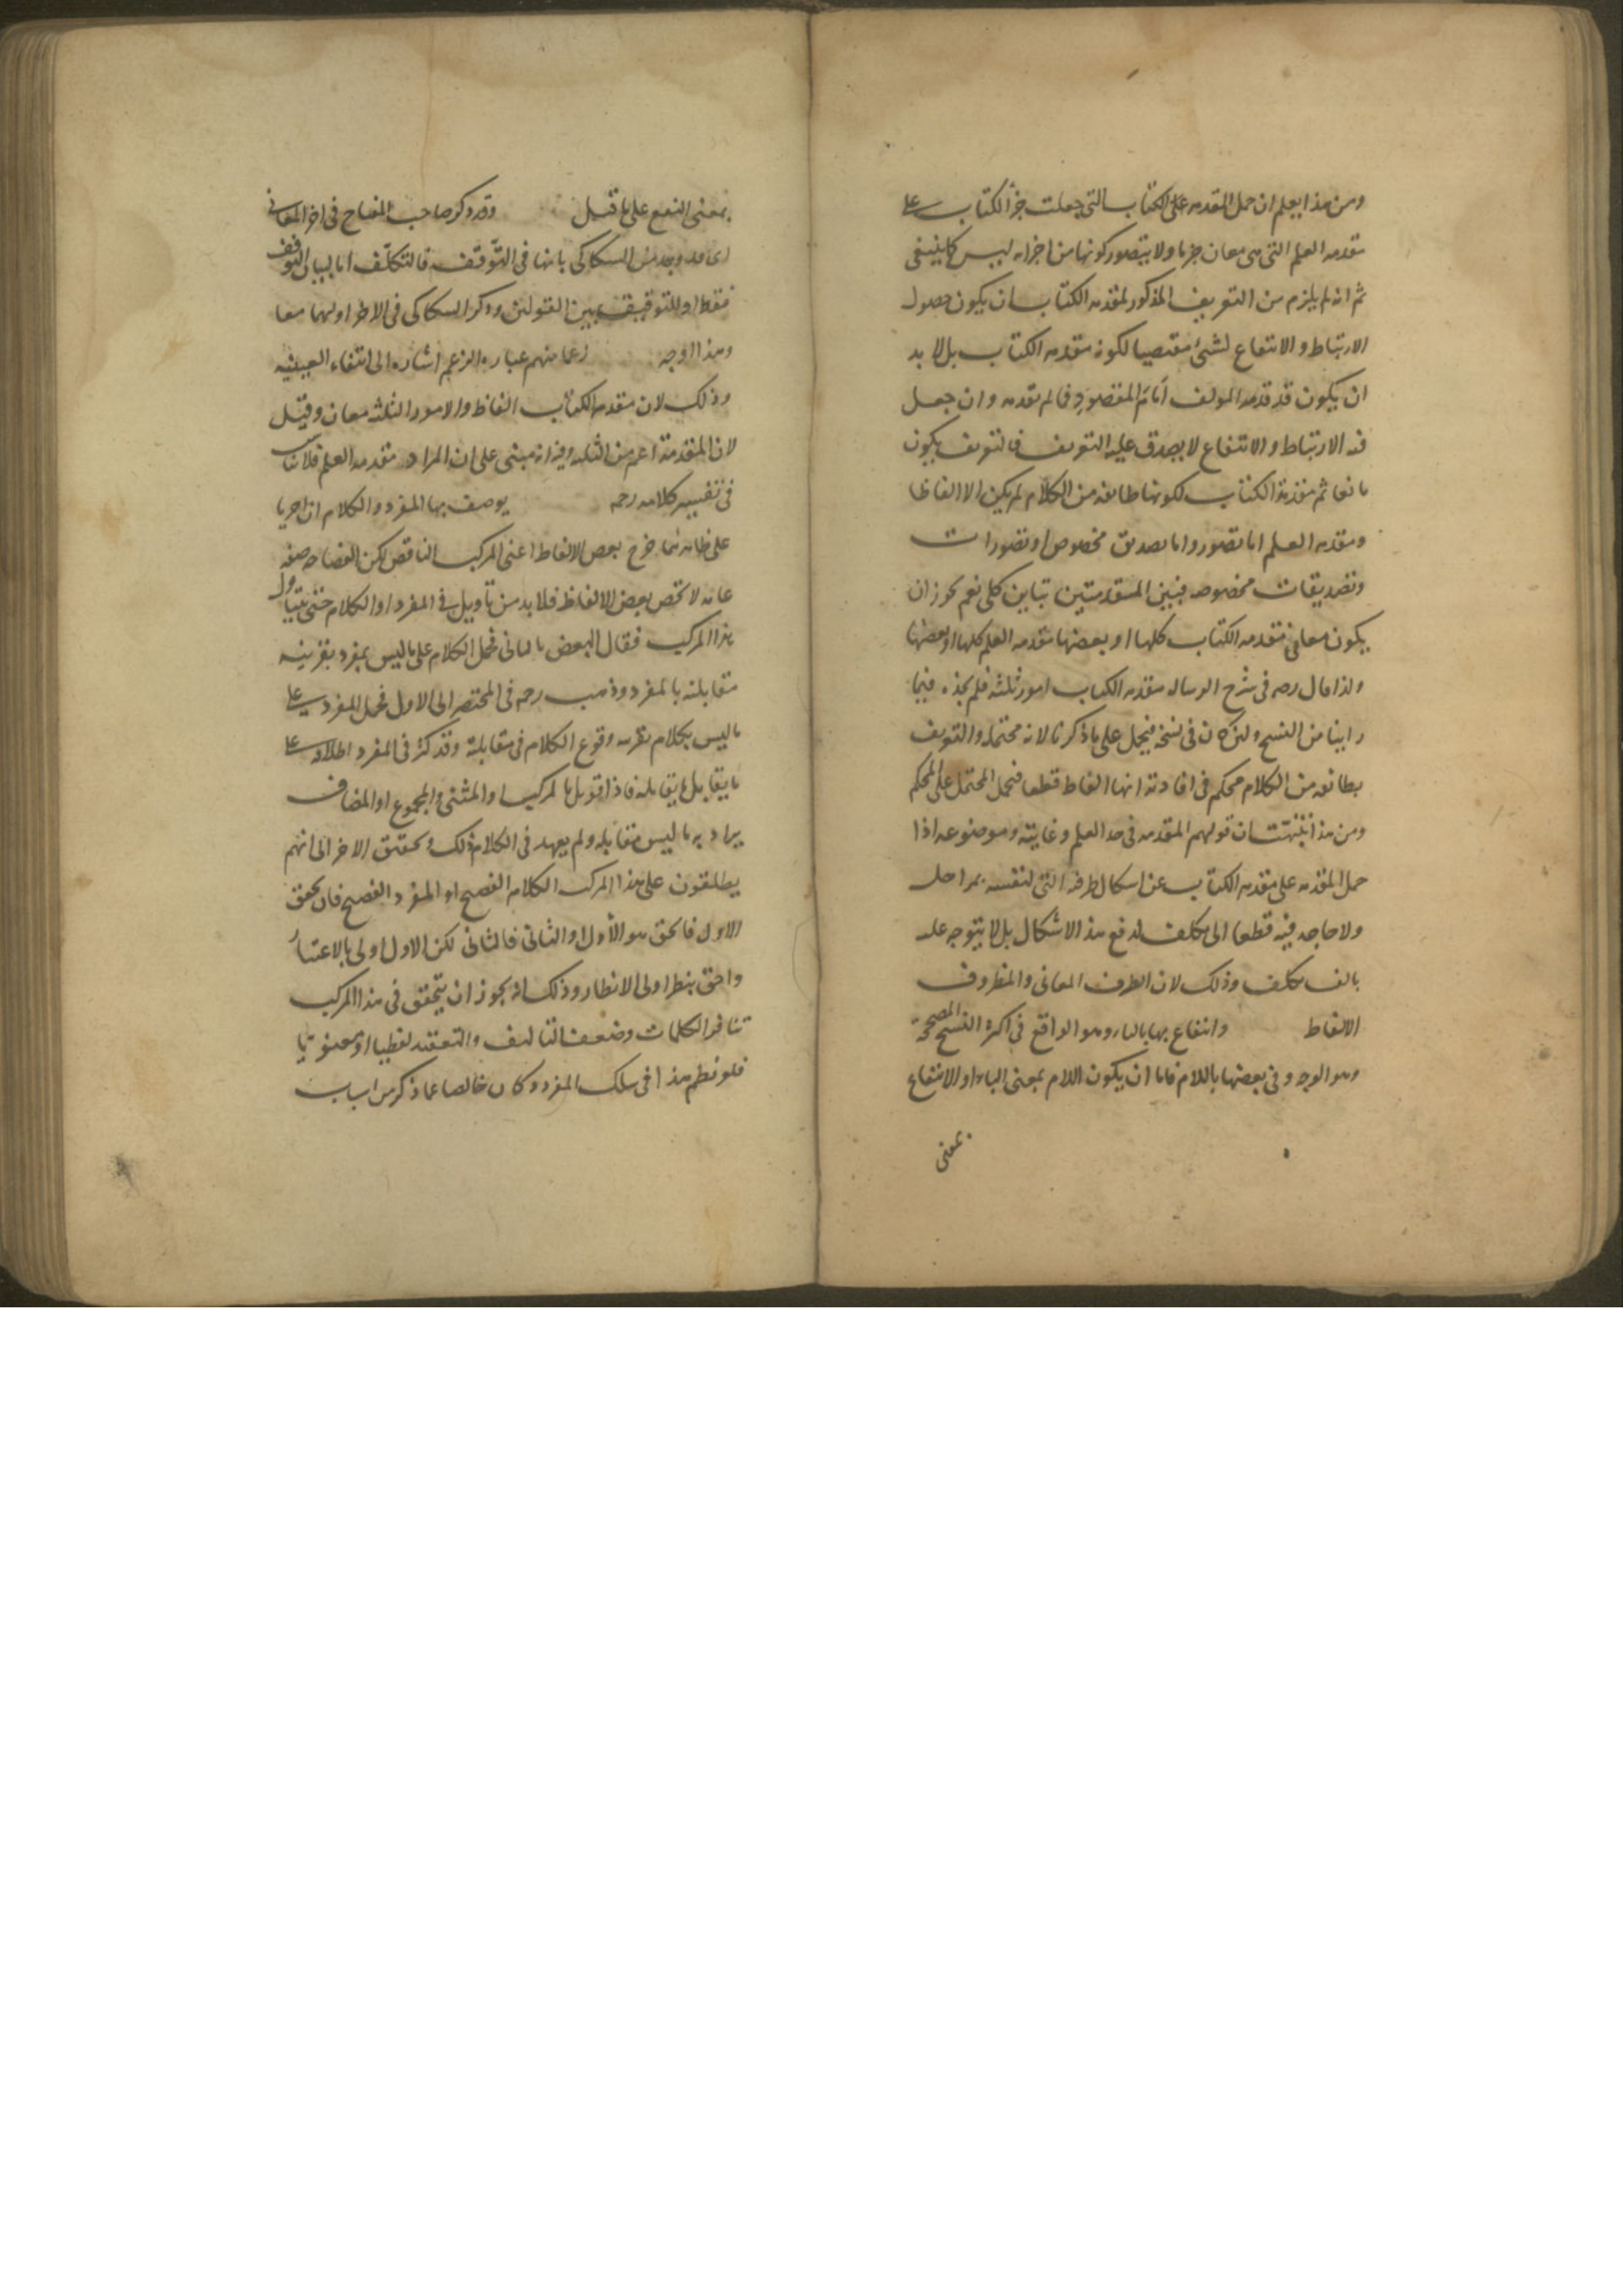 ومن هذا يعلم ان حمل المقدمه على الكتاب التى جعلت جزأ لكتاب على
مقدمه العلم التى هى معان جزما ولا يتصور كونها من اجزائه ليس كما ينبغى
ثم انه لم يلزم من التعريف المذكور لمقدمه الكتاب ان يكون حصول
الارتباط والانتفاع لشىء مقتضيا لكونه مقدمه الكتاب بل لا بد
ان يكون قد قدمه المولف امام المقصود فما لم تقدمه وان جعل
فيه الارتباط والانتفاع لا يصدق عليه التعريف فالتعريف يكون
مانعا ثم مقدمة الكتاب لكونها طائفه من الكلام لم يكن الا الفاظا
ومقدمه العلم اما تصور واما تصديق مخصوص او تصورات
وتصديقات مخصوصه فبين المقدمتين تباين كلى نعم يجوز ان
يكون معانى مقدمه الكتاب كلها او بعضها مقدمه العلم كلها او بعضها
ولذا قال رحمه فى شرح الرساله مقدمه الكتاب امور ثلثه فلم نجده فيما
راينا من النسخ ولئن كان فى نسخه فيحمل على ما ذكرنا لانه محتمل والتعريف
بطائفه من الكلام محكم فى افادته انها الفاظ قطعا فنحمل المحتمل على المحكم
ومن هذا تنبهت ان قولهم المقدمه فى حد العلم وغايته وموضوعه اذا
حمل المقدمه على مقدمه الكتاب عن اشكال ظرفيه الشى لنفسه بمراحل
ولا حاجه فيه قطعا الى تكلف لدفع هذا الاشكال بل لا يتوجه عليه
بالف تكلف وذلك لان الظرف المعانى والمظروف
الالفاظ وانتفاع بها بالباء وهو الواقع فى اكثر النسخ المصححة
وهو الوجه وفى بعضها باللام فاما ان يكون اللام بمعنى الباء او الانتفاع
بمعنى
بمعنى النفع على ما قيل وقد ذكر صاحب المفتاح فى اخر المعانى
السكاكى بانها فى التوقف فالتكلف اما لبيان التوقف
فقط او للتوفيق بين القولين وذكر السكاكى فى الاخر اولهما معا
وهذا اوجه زعما منهم عباره الزعم اشاره الى انتفاء العينيه
وذلك لان مقدمه الكتاب الفاظ والامور الثلثه معان وقيل
لان المقدمة اعم من الثلثه وفيه انه مبنى على ان المراد مقدمه العلم فلا يناسب
فى تفسير كلامه رحمه يوصف بها المفرد والكلام ان اجريا
على ظاهرهما خرج بعض الالفاظ اعنى المركب الناقص لكن الفصاحه صفه
عامه لا تختص ببعض الالفاظ فلا بد من تاويل فى المفرد او الكلام حتى يتناول
هذا المركب فقال البعض بالثانى فحمل الكلام على ما ليس بمفرد بقرينه
مقابلته بالمفرد وذهب رحمه فى المختصر الى الاول فحمل المفرد على
ما ليس بكلام بقرينه وقوع الكلام فى مقابلته وقد كثر فى المفرد اطلاقه على
ما يقابل ما يقابله فاذا قوبل بالمركب او المثنى والمجموع او المضاف
يراد به ما ليس مقابله ولم يعهد فى الكلام ذلك وتحقيق الاخر الى انهم
يطلقون على هذا المركب الكلام الفصيح او المفرد الفصيح فان تحقق
الاول فالحق هو الأول او الثانى فالثانى لكن الاول اولى بالاعتبار
واحق بنظر اولى الانظار وذلك انه يجوز ان يتحقق فى هذا المركب
تنافر الكلمات وضعف التاليف والتعقيد لفظيا او معنويا
فلو نظم هذا فى سلك المفرد وكان خالصا عما ذكر من اسباب